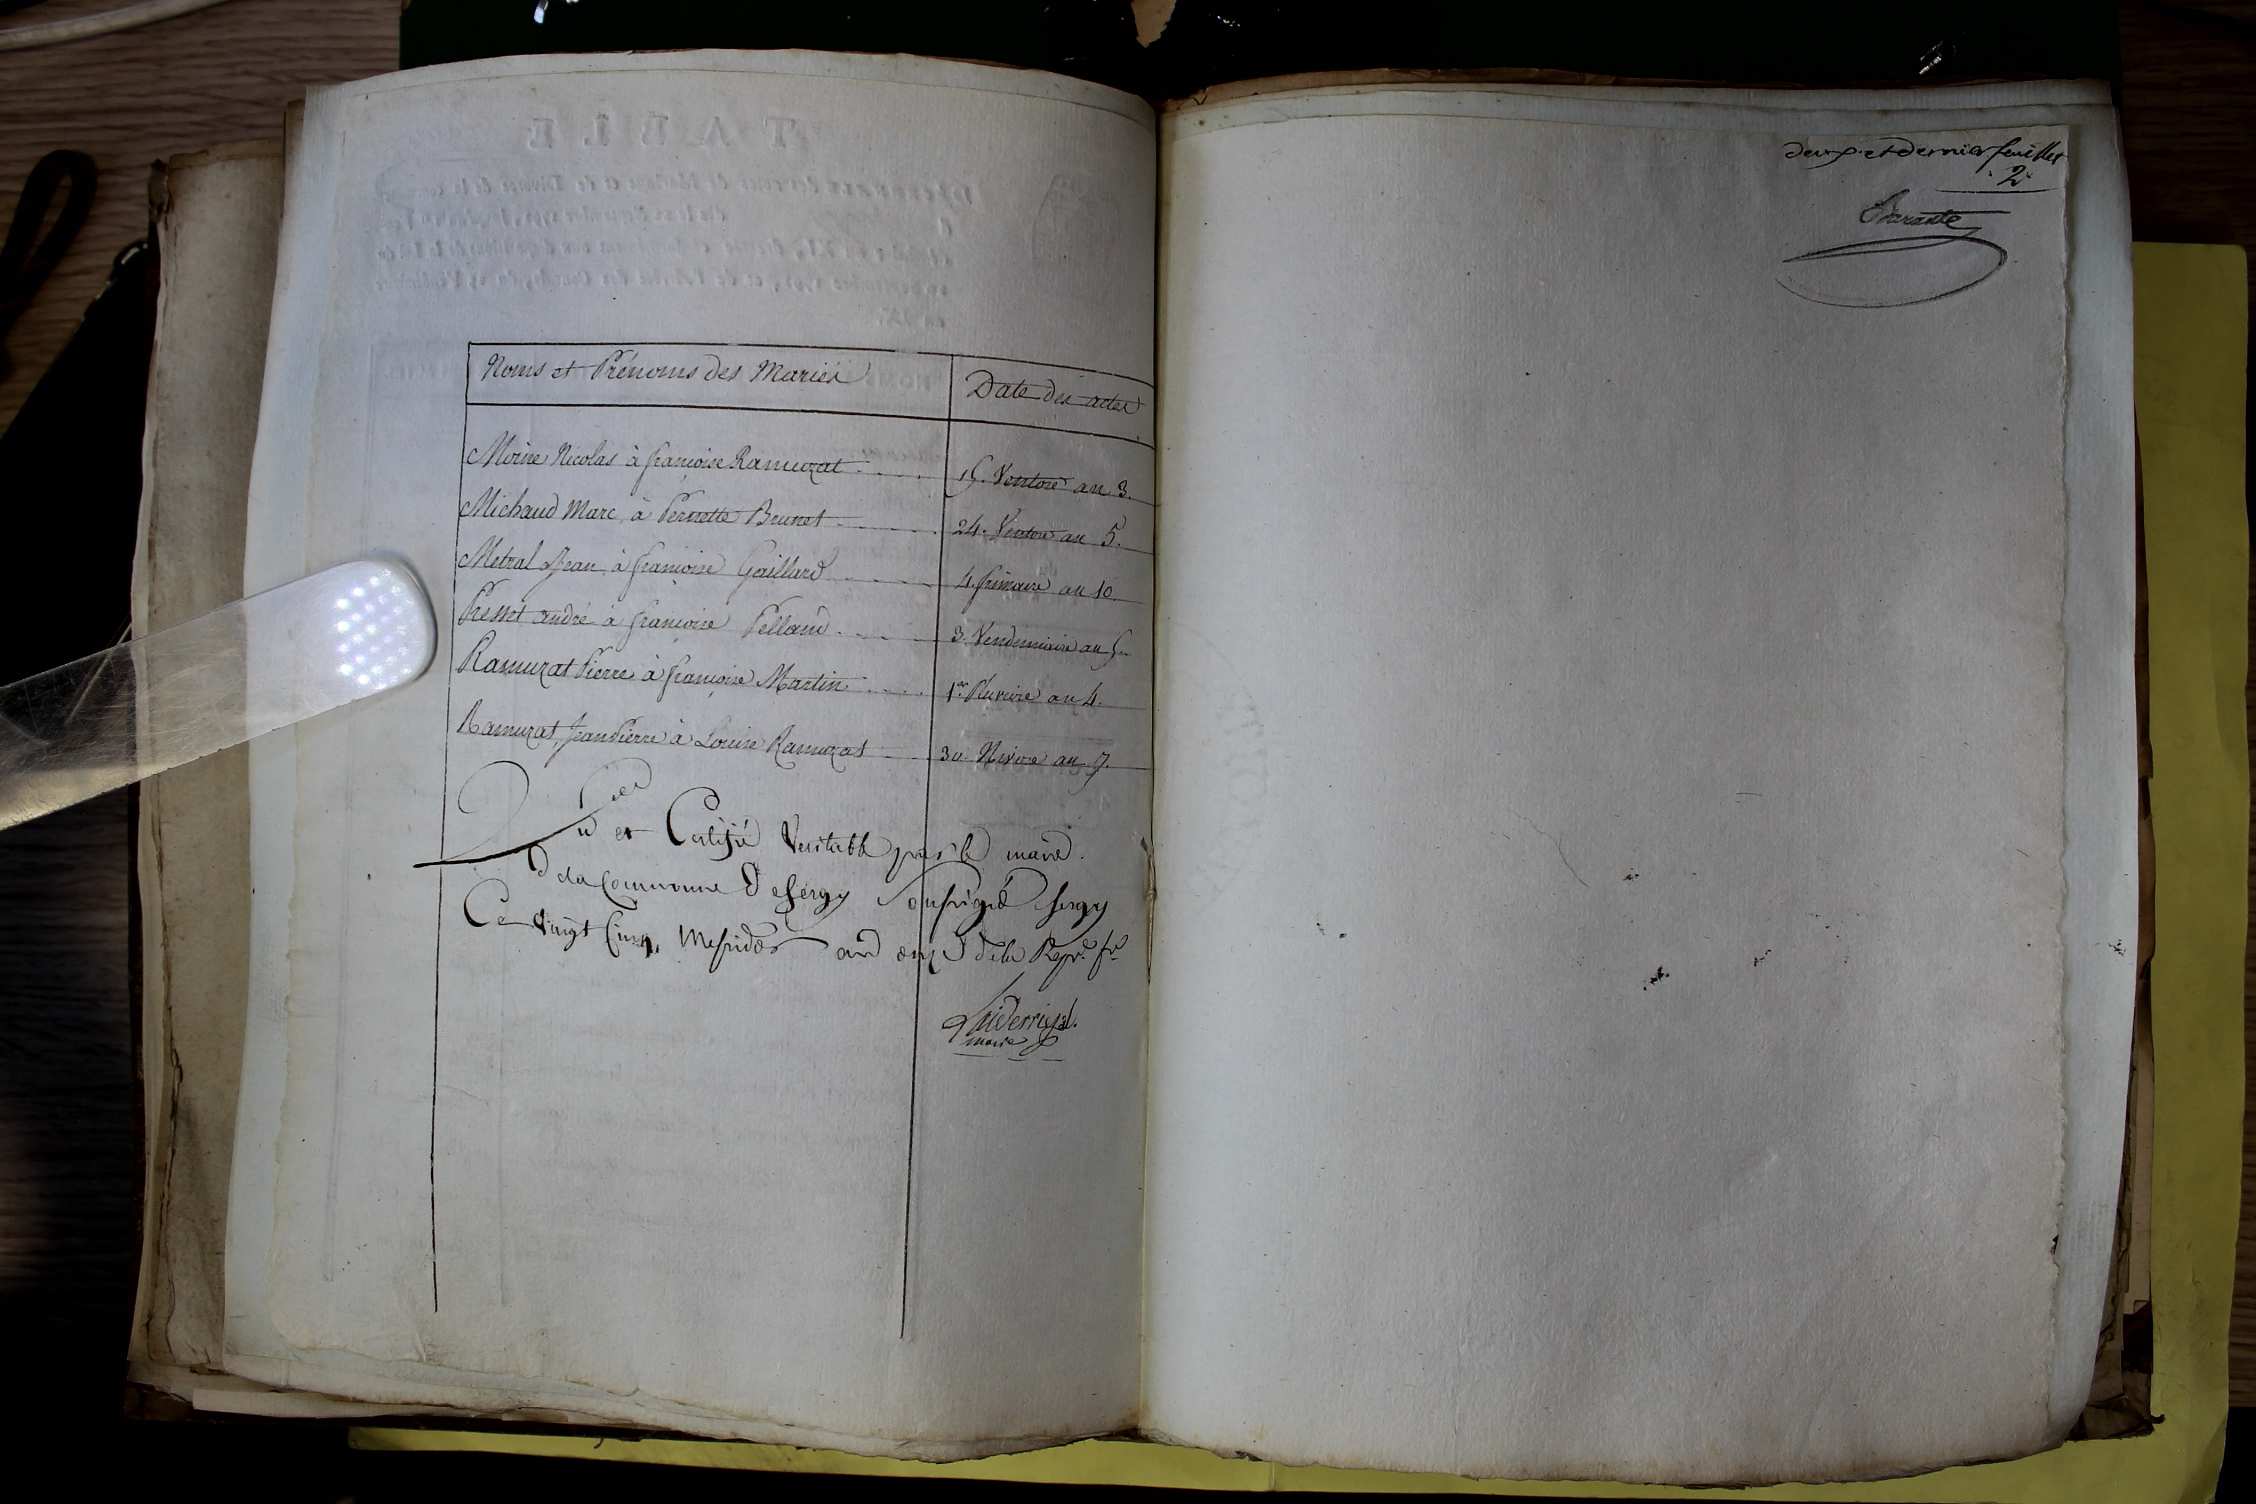 Noms et Prénoms des Mariés
Date des actes
Moine Nicolas à françoise Ramuzat
15. Ventose an 3.
Michaud Marc, à Pernette Brunet
24. Ventose an 5.
Metral Jean à françoise Gaillard
4. frimaire an 10
Presset andré à françoise Pelland
3. Vendemiaire an 5
Ramuzat Pierre à françoise Martin
1er Pluviose an 4.
Ramuzat, Jean Pierre à Louise Ramuzat
30. Nivose an 7.
Vu et Certifié Veritable par le maire
de la Commune de Sergy Soussigné Sergy
Ce vingt Cinq Messidor an onze de la Repe. fr
maire
deux. et dernier feuillet
2
Barante